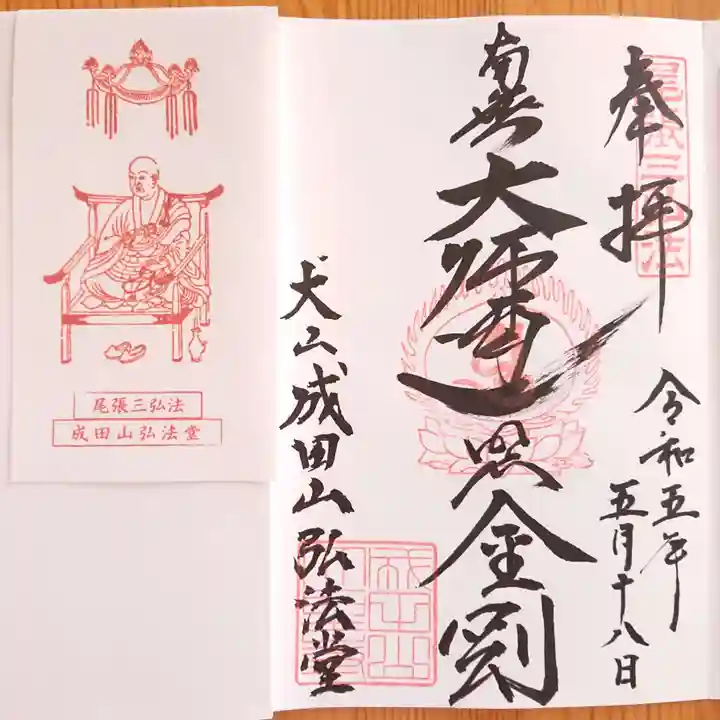 奉拝
尾張三弘法
令和五年
五月十八日
南無大師遍照金剛
犬山成田山弘法堂
尾張三弘法
成田山弘法堂